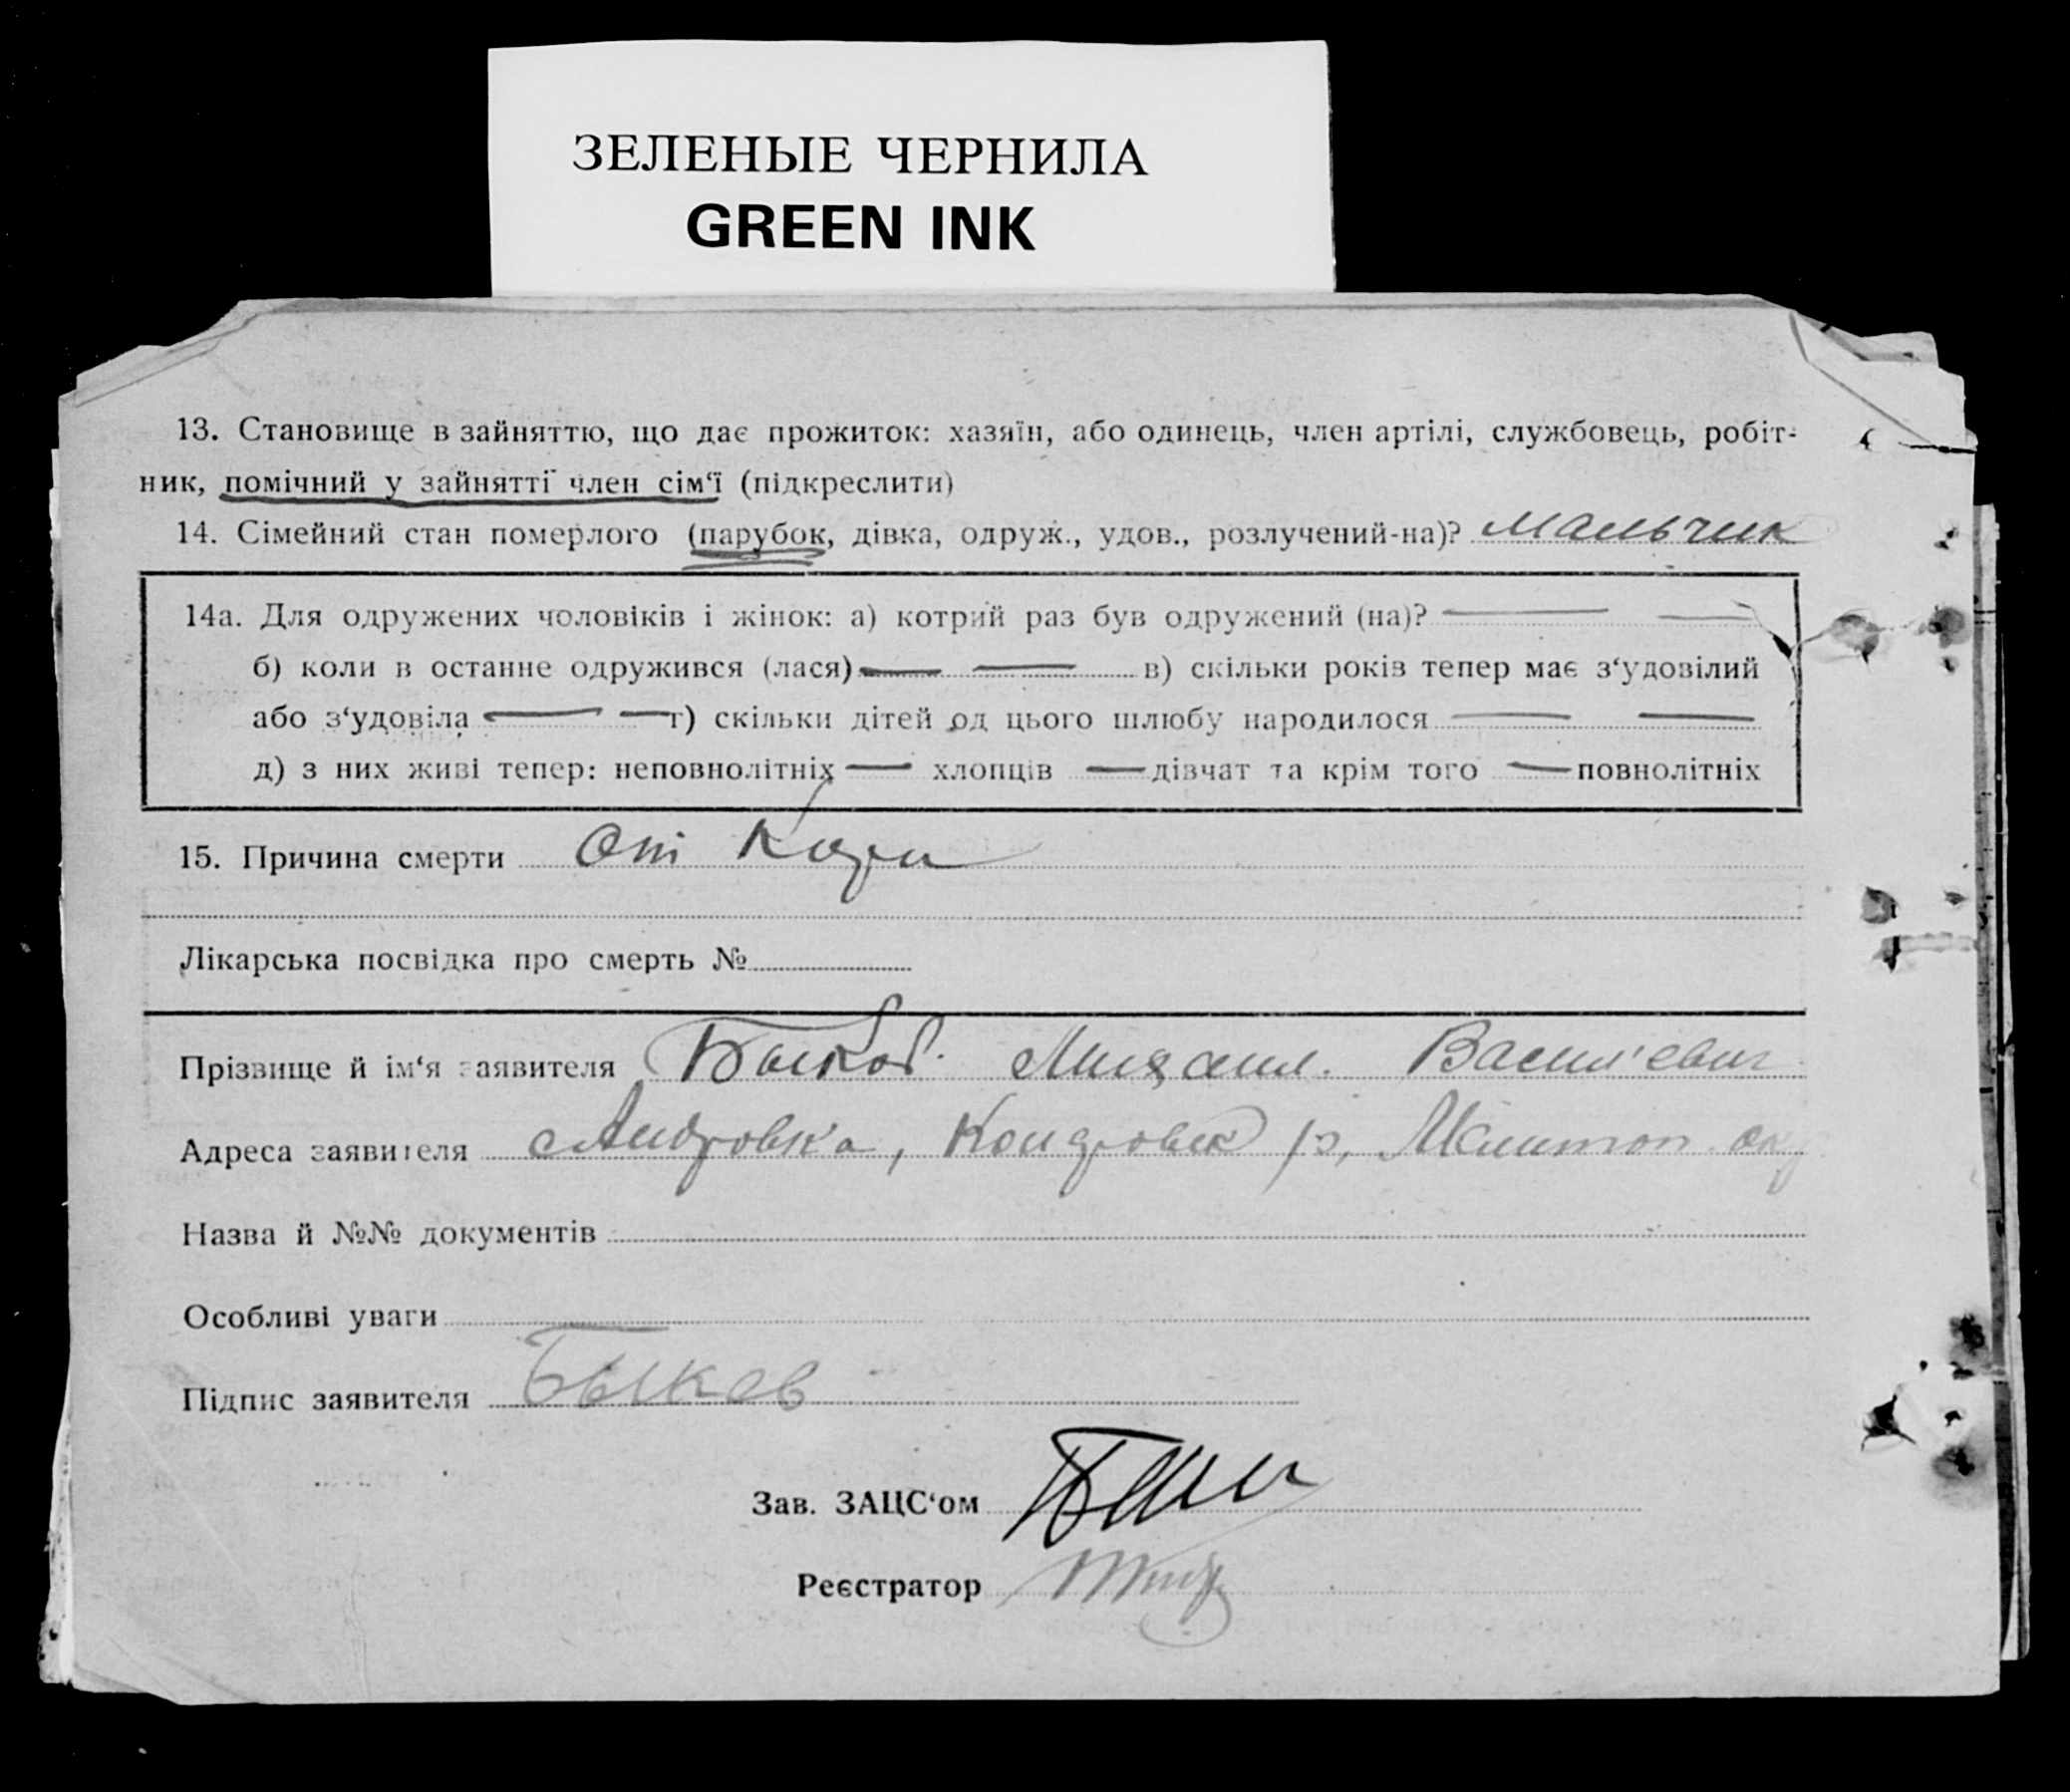 ЗЕЛЕНЫЕ ЧЕРНИЛА
GREEN INK
13. Становище в зайняттю, що дає прожиток: хазяїн, або одинець, член артілі, службовець, робіт-
ник, помічний у зайнятті член сім‘ї (підкреслити)
14. Сімейний стан померлого (парубок, дівка, одруж., удов., розлучений-на)? Мальчик
14а. Для одружених чоловіків і жінок: а) котрий раз був одружений (на)? — —
б) коли в останнє одружився (лася) — — в) скільки років тепер має з‘удовілий
або з‘удовіла — — г) скільки дітей од цього шлюбу народилося — —
д) з них живі тепер: неповнолітніх — хлопців — дівчат та крім того — повнолітніх
15. Причина смерти От Кори
Лікарська посвідка про смерть №
Прізвище й ім‘я заявителя Быков. Михаил. Васил'евич
Адреса заявителя Андровка, р, Мелитоп. окр
Назва й №№ документів
Особливі уваги
Підпис заявителя Быков
Зав. ЗАЦС‘ом
Реєстратор